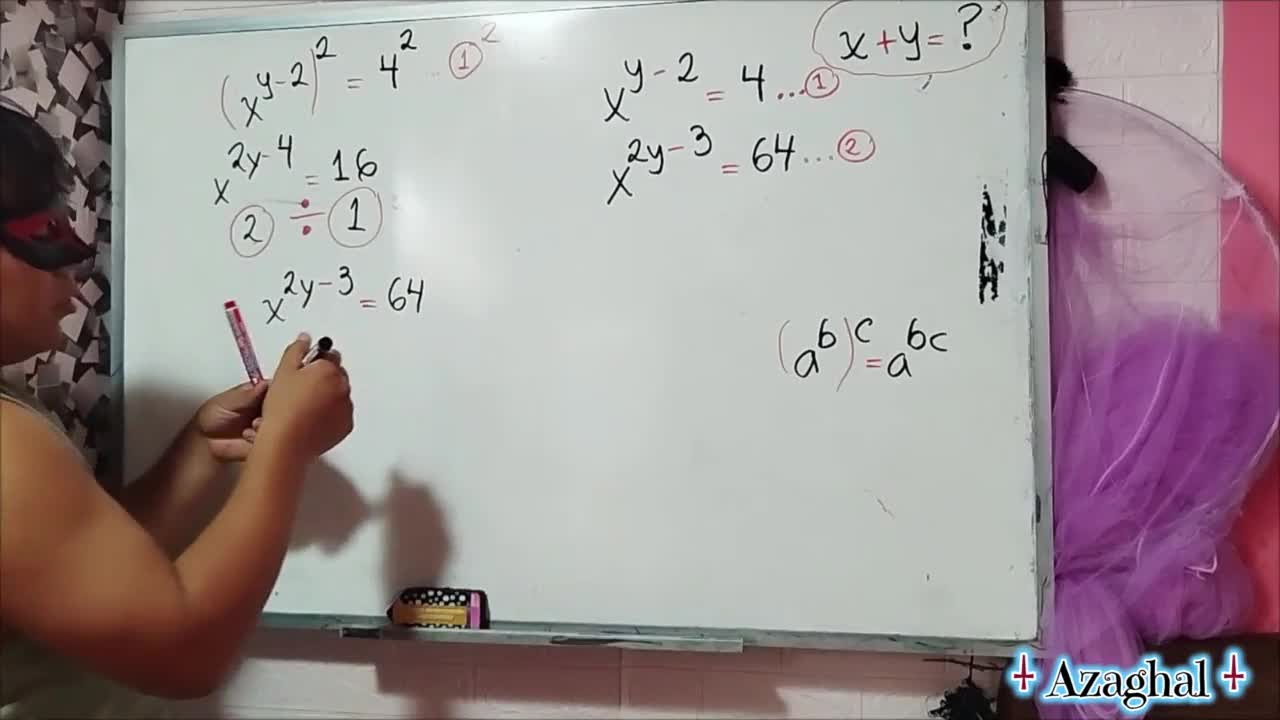 (x^{y-2})^2 = 4^2 ... ①^2
x^{2y-4} = 16
② ÷ ①
x^{2y-3} = 64
x+y=?
x^{y-2} = 4 ... ①
x^{2y-3} = 64 ... ②
(a^b)^c = a^{bc}
Azaghal